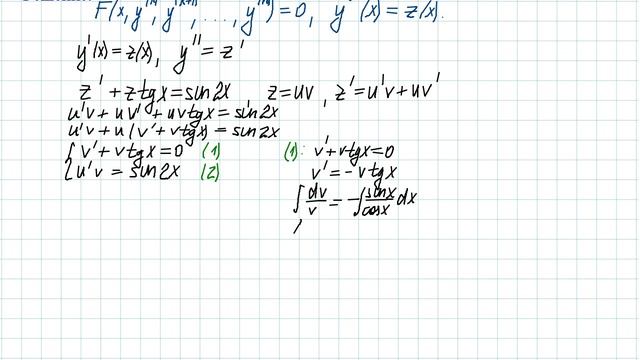 F(x, y⁽ᵏ⁾, y⁽ᵏ⁺¹⁾, ..., y⁽ⁿ⁾) = 0, y (x) = z(x).
y'(x) = z(x), y'' = z'
z' + z tgx = sin2x z = uv, z' = u'v + uv'
u'v + uv' + uv tgx = sin2x
u'v + u(v' + v tgx) = sin2x
{ v' + v tgx = 0 (1) (1): v' + v tgx = 0
{ u'v = sin2x (2) v' = -v tgx
∫ dv/v = -∫ sinx/cosx dx